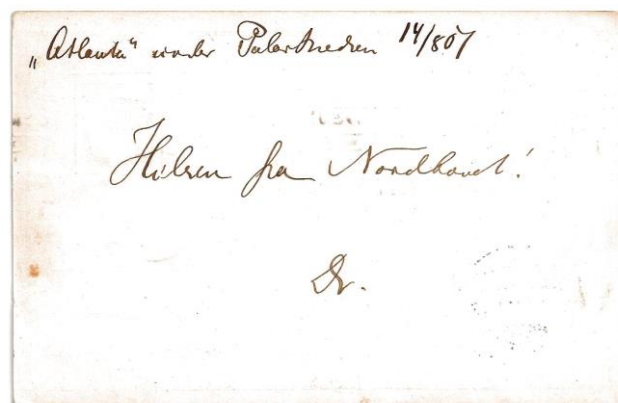 „Atlanta" under Polarkredsen 14/8 07
Hilsen fra Nordhavet!
Dr.